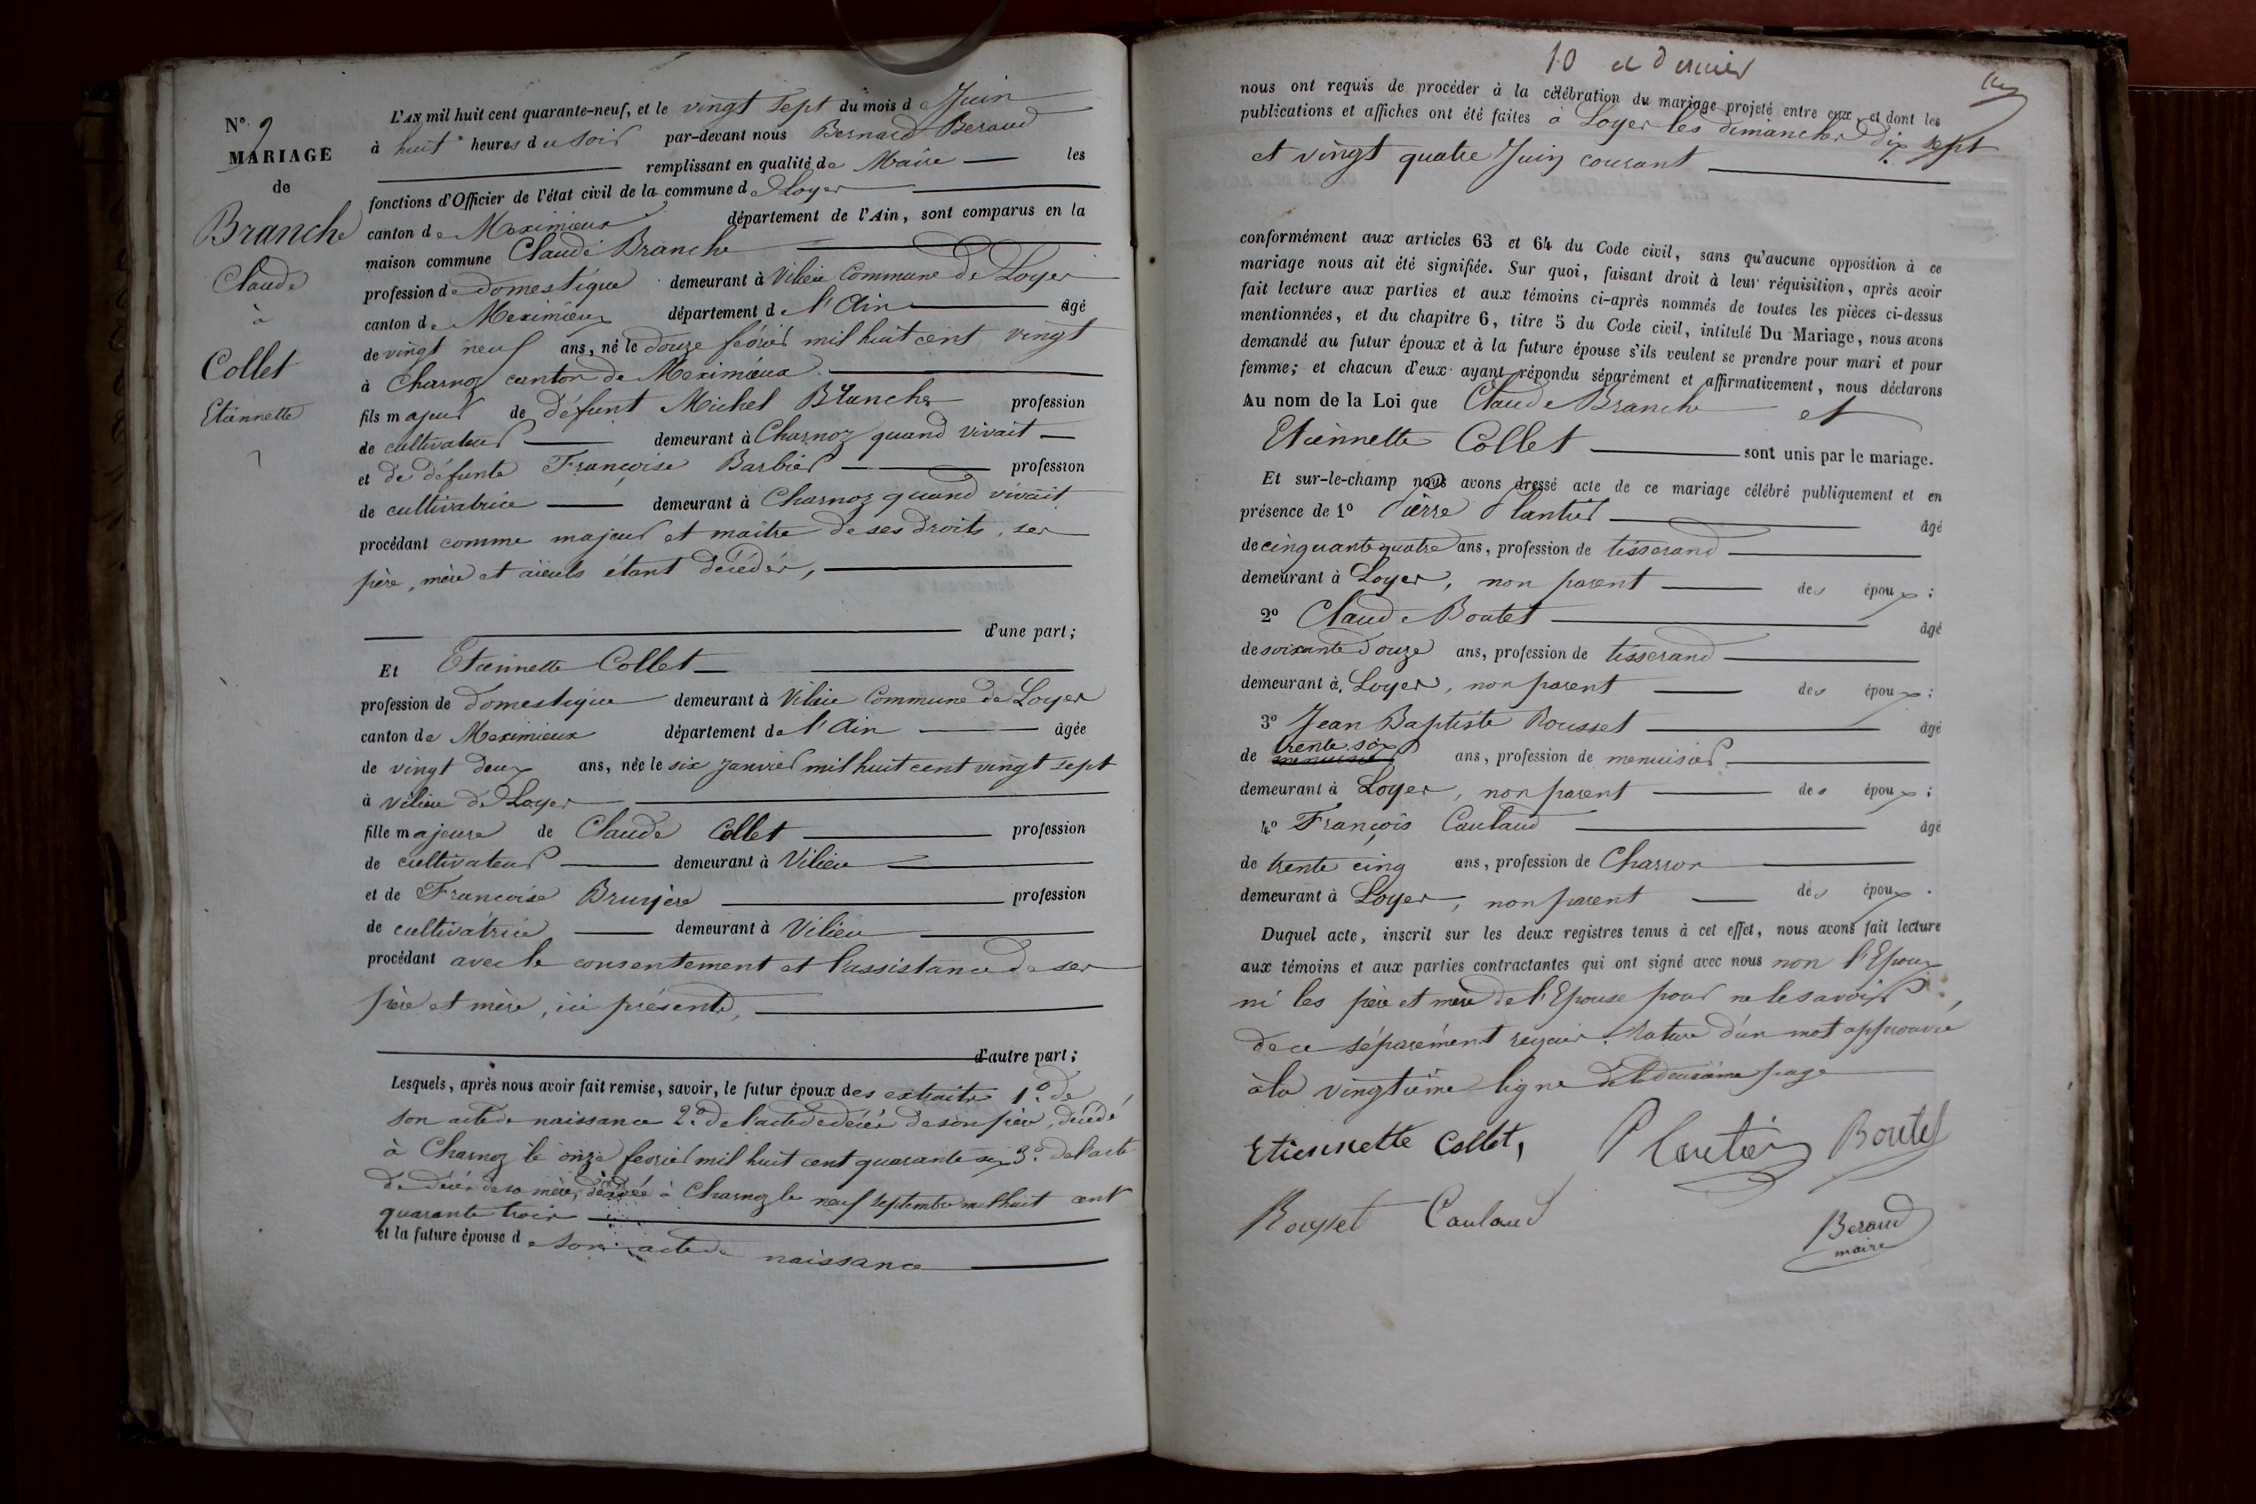 N° 9
MARIAGE
de
Branche
Claude
à
Collet
Etiennette
L'AN mil huit cent quarante-neuf, et le vingt sept du mois de Juin
à huit heures du soir par-devant nous Bernard Beraud
remplissant en qualité de Maire les
fonctions d'Officier de l'état civil de la commune de Loyes
canton de Meximieux département de l'Ain, sont comparus en la
maison commune Claude Branche
profession de domestique demeurant à Vilieu Commune de Loyes
canton de Meximieux département de l'Ain âgé
de vingt neuf ans, né le douze février mil huit cent vingt
à Charnoz canton de Meximieux
fils majeur de défunt Michel Branche profession
de cultivateur demeurant à Charnoz quand vivait
et de défunte Françoise Barbier profession
de cultivatrice demeurant à Charnoz quand vivait
procédant comme majeur et maitre de ses droits, ses
père, mère et aïeuls étant décédés,
d'une part;
Et Etiennette Collet
profession de domestique demeurant à Vilieu Commune de Loyes
canton de Meximieux département de l'Ain âgée
de vingt deux ans, née le six janvier mil huit cent vingt sept
à Vilieu de Loyes
fille majeure de Claude Collet profession
de cultivateur demeurant à Vilieu
et de Francoise Bruyère profession
de cultivatrice demeurant à Vilieu
procédant avec le consentement et l'assistance de ses
père et mère, ici présents,
d'autre part;
Lesquels, après nous avoir fait remise, savoir, le futur époux des extraits 1° de
son acte de naissance 2° de l'acte de décès de son père, décédé
à Charnoz le onze fevrier mil huit cent quarante six 3° de l'acte
de décès de sa mère, décédée à Charnoz le neuf septembre mil huit cent
quarante trois
et la future épouse de son acte de naissance
10 et dernier
nous ont requis de procéder à la célébration du mariage projeté entre eux, et dont les
publications et affiches ont été faites à Loyes les dimanches dix sept
et vingt quatre Juin courant
conformément aux articles 63 et 64 du Code civil, sans qu'aucune opposition à ce
mariage nous ait été signifiée. Sur quoi, faisant droit à leur réquisition, après avoir
fait lecture aux parties et aux témoins ci-après nommés de toutes les pièces ci-dessus
mentionnées, et du chapitre 6, titre 5 du Code civil, intitulé Du Mariage, nous avons
demandé au futur époux et à la future épouse s'ils veulent se prendre pour mari et pour
femme; et chacun d'eux ayant répondu séparément et affirmativement, nous déclarons
Au nom de la Loi que Claude Branche et
Etiennette Collet sont unis par le mariage.
Et sur-le-champ nous avons dressé acte de ce mariage célébré publiquement et en
présence de 1° Pierre Plantier âgé
de cinquante quatre ans, profession de tisserand
demeurant à Loyes, non parent des époux;
2° Claude Boutet âgé
de soixante douze ans, profession de tisserand
demeurant à Loyes, non parent des époux;
3° Jean Baptiste Rousset âgé
de trente six ans, profession de menuisier
demeurant à Loyes, non parent des époux;
4° François Caulaud âgé
de trente cinq ans, profession de Charron
demeurant à Loyes, non parent des époux.
Duquel acte, inscrit sur les deux registres tenus à cet effet, nous avons fait lecture
aux témoins et aux parties contractantes qui ont signé avec nous non l'Epoux
ni les père et mère de l'Epouse pour ne le savoir,
de ce séparément requis. Rature d'un mot approuvée
à la vingtième ligne de la deuxième page
Etiennette Collet, Plantier Boutet
Rousset Caulaud
Beraud
maire